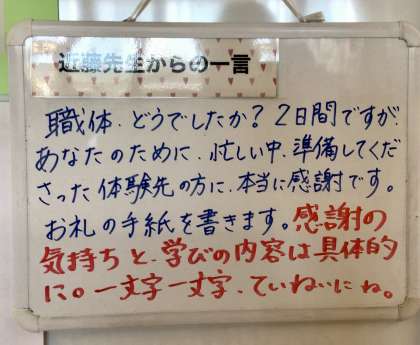 近藤先生からの一言
職体、どうでしたか？2日間ですが、
あなたのために、忙しい中、準備してくだ
さった体験先の方に、本当に感謝です。
お礼の手紙を書きます。感謝の
気持ちと、学びの内容は具体的
に。一文字一文字、ていねいにね。